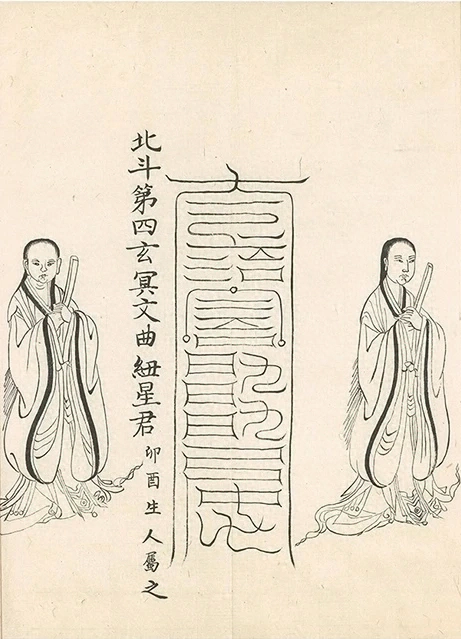 北斗第四玄冥文曲紐星君 卯酉生人屬之